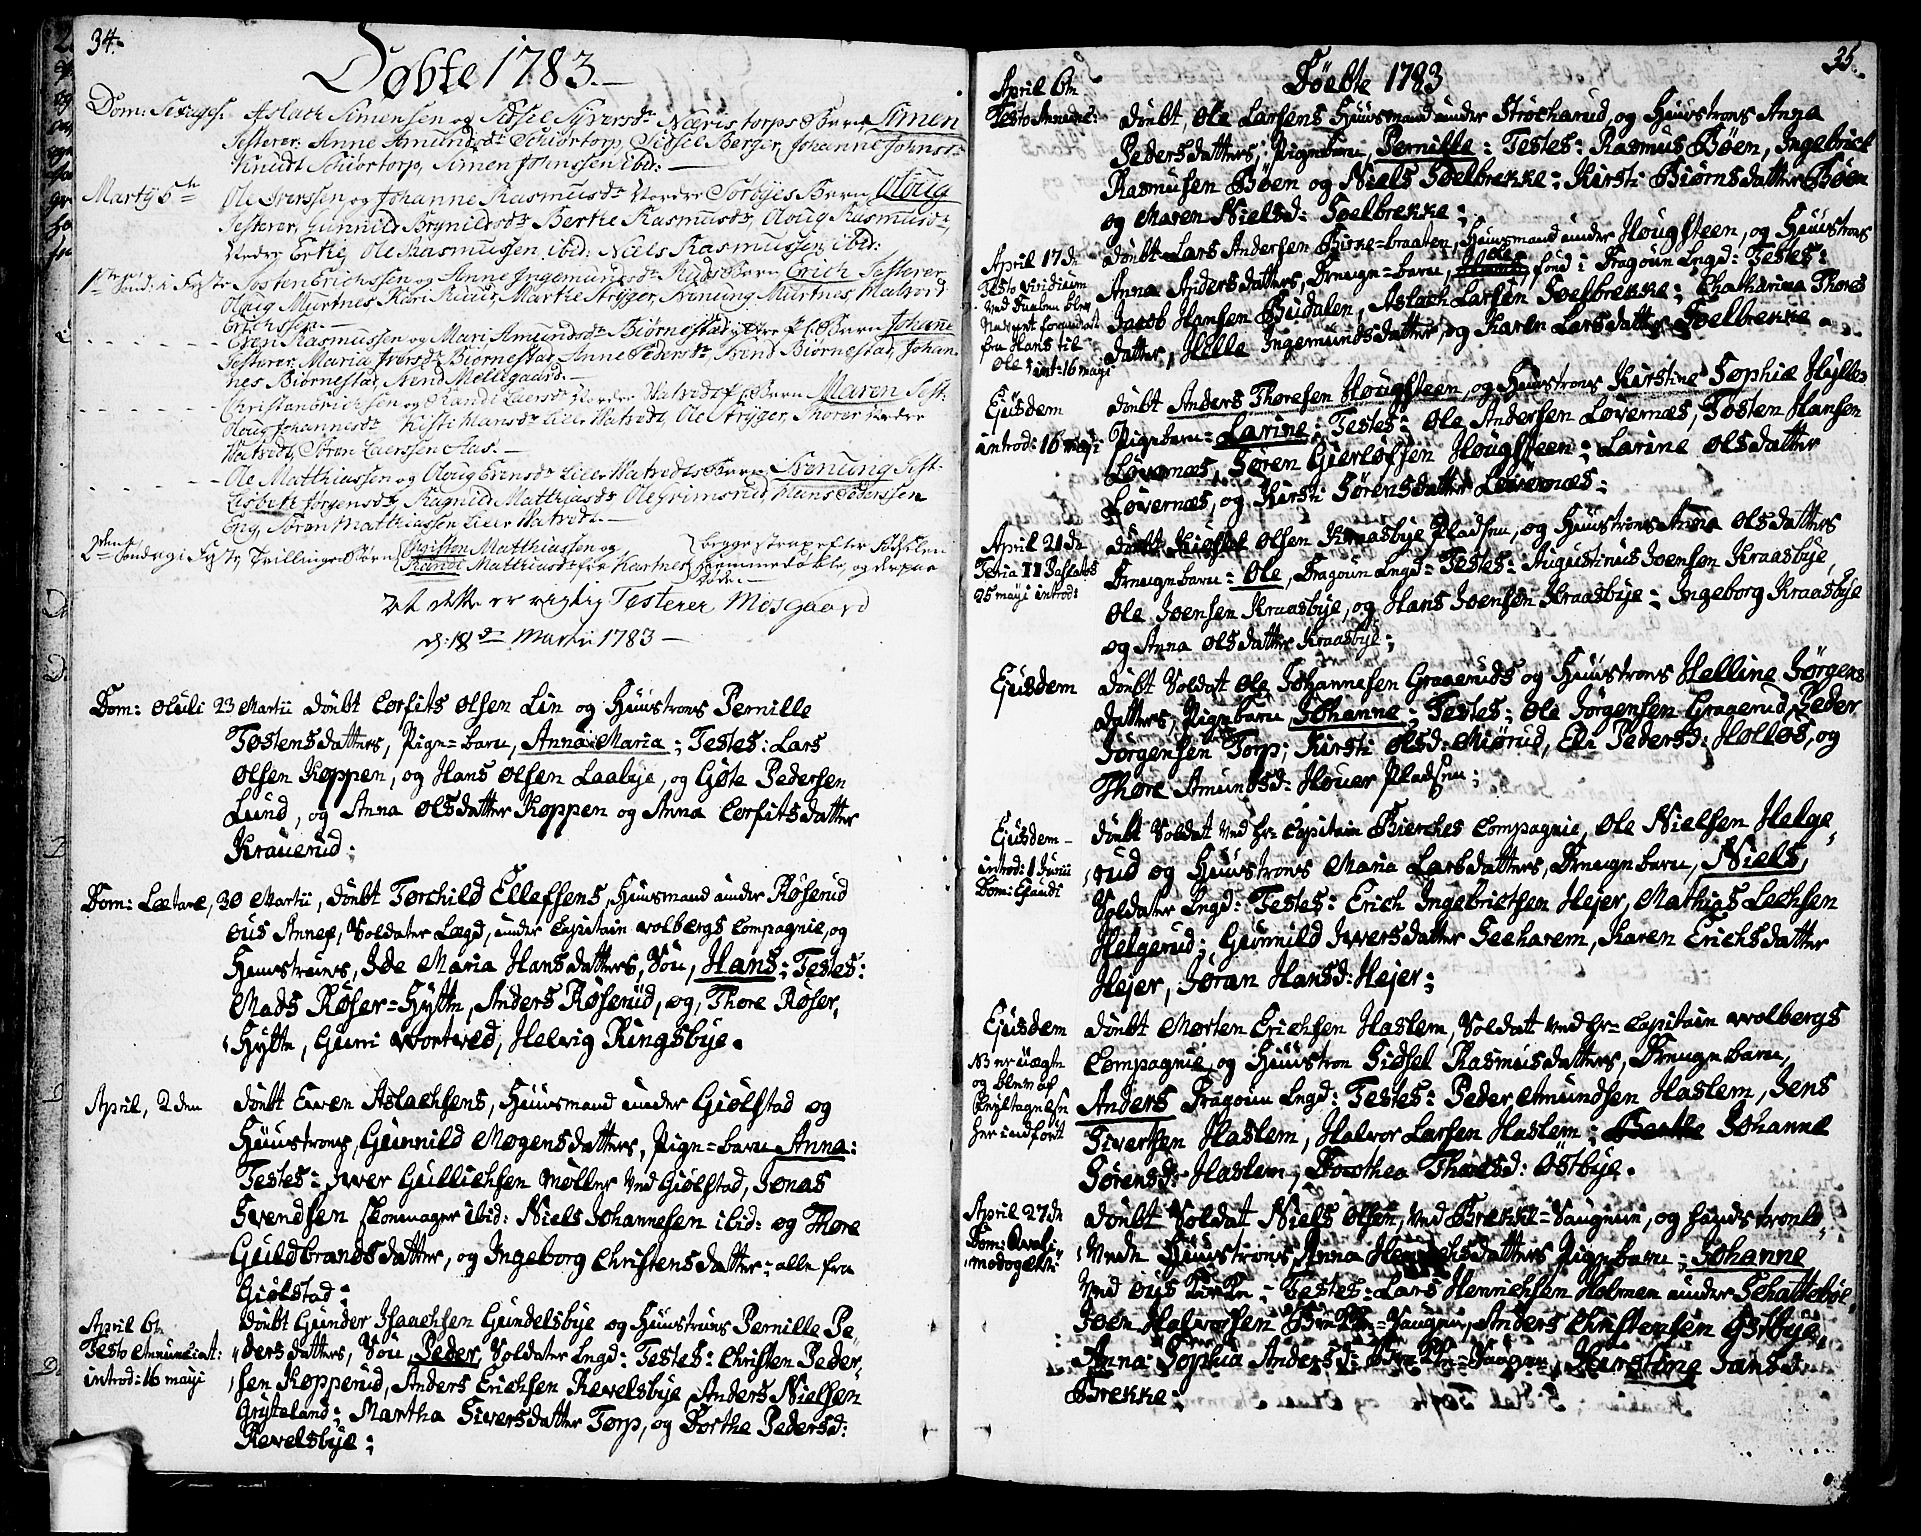 34.
Døbte 1783.
Dom: Sexages. Aslach Simensen og Sidsel Syversdr Næristorps Barn Simen
Testerer, Anne Amundsdr Schiørtorp, Sidsel Berger, Johanne Johnsdr
Knudt Schiørtorp, Simen Johnssen ibid: —
Martÿ 6te Ole Iverssen og Johanne Rasmusdr Nordre Sorbyes Barn Oloug
Testerer, Gunnild Brynildsdr Berthe Rasmusdr, Oloug Rasmusdr,
Nedre Erkie, Ole Rasmussen ibid: Niels Rasmussen ibid:
1ste Sønd: i Faste Tosten Erichssen og Anne Ingemundsdr Ruds Barn Erich Testerer
Oloug Murtnes, Kari Ruud, Marthe Stryger, Svenung Murtnes, Halvord
Erichssen. —
Even Rasmussen og Mari Amundsdr Biørnestad Barn Johanne
Testerer, Maria Iversdr Biørnestad, Anne Pedersdr, Svend Biørnestad, Johan-
nes Biørnestad, Svend Mellegaard. —
Christian Erichssen og Randi Laersdr Nordre Watvidt Barn Maren Test:
Oloug Johannesdr Kisti Hansdr Lille Watvidt, Ole Stryger, Thorer Nordre
Watvidt, Søren Laerssen Aas. —
Ole Matthiassen og Oloug Evensdr Lille Watvidts Barn Svenung Test:
Lisbeth Jørgensdr, Ragnild Matthiasdr Ole Grimsrud, Hans Pederssen
Eng, Søren Matthiassen Lille Watvidt. —
2den Søndag i Faste, Tvillinger Børn Christen Matthiassen og
Randi Matthiasdr fra Kartnes begge strax efter Fødselen
hiemmedøbte, og derpaa
døde. —
At dette er rigtig Testerer Mosgaard
d: 18de Martii 1783 —
Dom: Oculi 23 Martii døubt Corfits Olsen Lin og Hüustrues Pernille
Tøstensdatters, Pige-barn, Anna Maria; Testes: Lars
Olsen Køppen, og Hans Olsen Laabye, og Gøte Pedersen
Lund, og Anna Olsdatter Køppen og Anna Corfitsdatter
Krauerud:
Dom: Lætare, 30 Martii, døubt Torchild Ellefsens, Huusmand under Røserud
Annex, Soldater Lægd, under Capitain Wolbergs Compagnie, og
Hüustrues, Ide Maria Hansdatters, Søn, Hans; Testes:
Mads Røser-Hytte, Anders Røserüd, og, Thore Røser,
Hytte, Gurri Wortved, Helvig Ringsbye.
April, 2 den døubt Ewen Aslachsens, Hüusmand under Giølstad og
Hüustrues, Gunnild Mogensdatters, Pige-barn Anna:
Testes: Jwer Gullichsen Møller ved Giølstad, Jonas
Svendsen Skomager ibid: Niels Johannesen ibid: og Thore
Guldbrandsdatter, og Ingeborg Christensdatter; alle fra
Giølstad;
April 6te
Festo Annunciat:
introd: 16 maÿi
døubt Gunder Isaachsen Gundelsbye og Hüustrues Pernille Pe-
dersdatters, Søn, Peder, Soldater Lægd: Testes: Christen Peder,
sen Kopperud, Anders Erichsen Revelsbye Anders Nielsen
Gryteland; Martha Siversdatter Torp, og Dorthe Pedersd:
Revelsbye;
35.
Döebte 1783
April 6te
Festo Annunc: døubt, Ole Larsens Hüusmand under Strøcharud, og Hüustrues Anna
Pedersdatters, Pigebarn, Pernille: Testes: Rasmus Bøen, Ingebrict
Rasmusen Bøen og Niels Soelbrekke; Kirsti Biørnsdatter Bøen
og Maren Nielsd: Soelbrekke;
April 17 de
Festo Viridium
ved Daaben blev
Navnet forandret
fra Hans til
Ole; int: 16 mayi
døubt Lars Andersen Birke-braaten, Hüusmand under Hougsteen, og Hüustrues
Anna Andersdatters, Drenge-barn, Ole, fød i Dragoun Lægd: Testes:
Jacob Hansen Budalen, Aslach Larsen Soelbrekke; Chatharina Thores
datter, Helle Ingemundsdatter, og Karen Larsdatter Soelbrekke.
Ejusdem
introd: 16 mayi:
døubt Anders Thoresen Hougsteen, og Hüustrues Kirstine Sophie Hylles
Pigebarn = Larine; Testes: Ole Andersen Løvernæs, Tosten Hansen
Løvernæs, Søren Gierløfsen Hougsteen; Larine Olsdatter
Løvernæs, og Kirsti Sørensdatter Løvernæs;
April 21 de
Feria II Paschatos
25 mayi introd:
døubt Olsen Kraasbye Pladsen, og Hüustrues Anna Olsdatters
Drengebarn = Ole, Dragoun Lægd: Testes: Augustinus Joensen Kraasbye,
Ole Joensen Kraasbye, og Hans Joensen Kraasbye; Ingeborg Kraasbye
og Anna Olsdatter Kraasbye;
Ejusdem døubt Soldat Ole Johannesen Graaeruds og Hüustrues Helline Jørgens
datters, Pigebarn, Johanne; Testes: Ole Jørgensen Graaerud, Peder
Jorgensen Torp; Kirsti Olsd: Miørud, Eli Pedersd: Holløs, og
Thore Amundsd: Houer Pladsen;
Ejusdem —
introd: 1 Junii
Dom: Exaudi
døubt Soldat ved Hr= Capitain Bierches Compagnie, Ole Nielsen Helge
rud og Hüustrues Maria Larsdatters, Drengebarn, Niels,
Soldater Lægd: Testes: Erich Ingebrictsen Hejer, Mathias Lechsen
Helgerud; Gunnild Iwersdatter Seeharem, Karen Erichsdatter
Hejer, Jøran Hansd: Hejer;
Ejusdem
NB er uægte
og blev af
her indført
døubt Morten Erichsen Haslem, Soldat ved Hr= Capitain Wolbergs
Compagnie, og Hüustrue Sidsel Rasmusdatters, Drengebarn,
Anders Dragoun Lægd: Testes: Peder Amundsen Haslem, Jens
Sivertsen Haslem, Halvor Larsen Haslem; Johanne
Sørensd: Haslem, Dorothea Thoresd: Ostbye.
April 27 de
Dom: Quasi-
modogeniti:
døubt Soldat Niels Olsen, ved Brekke-Saugene, og
Hüustrues Anna Henrichsdatters Pigebarn; Johanne
Testes: Lars Henrichsen Holmen under Schattebøl
Joen Halvorsen Saugene, Anders Christensen Ostbye,
Anna Sophia Andersd: Saugen, Kirstine Jansd:
Brekke;